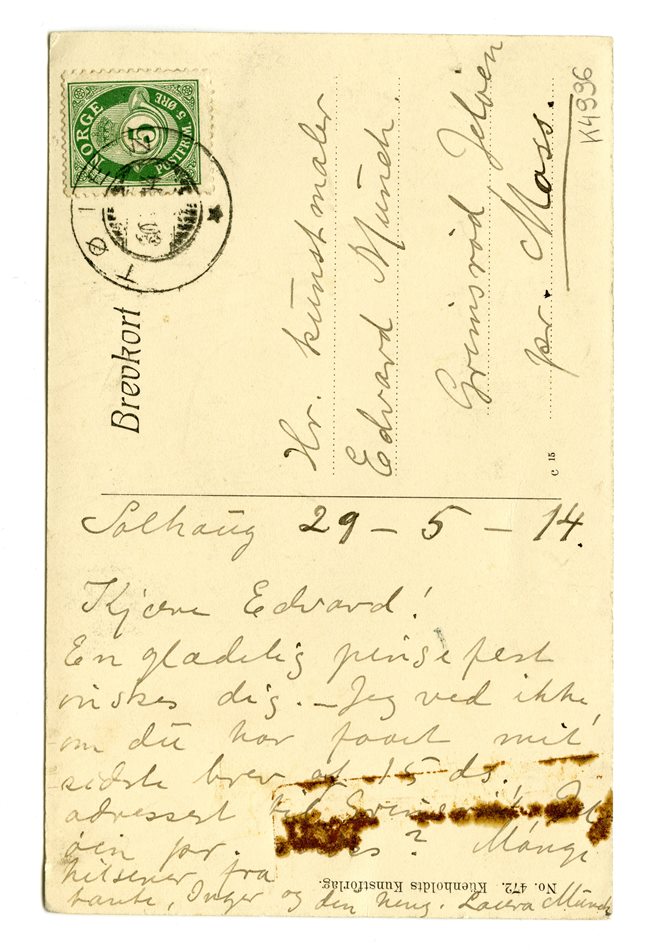 K4996
NORGE
5
POSTFRIM. 5 ØRE
TØ
Brevkort
Hr. Kunstmaler
Edvard Munch.
Grimsröd, Jelöen
pr. Moss.
C 15
Solhaug 29 - 5 - 14.
Kjære Edvard!
En glædelig pinsefest
ønskes dig. – Jeg ved ikke,
om du har faaet mit
sidste brev af 15 ds.
adressert til Grimsröd Jel
öen pr. ? Mange
hilsener fra
tante, Inger og din heng. Laura Munch
No. 472. Küenholdts Kunstforlag.